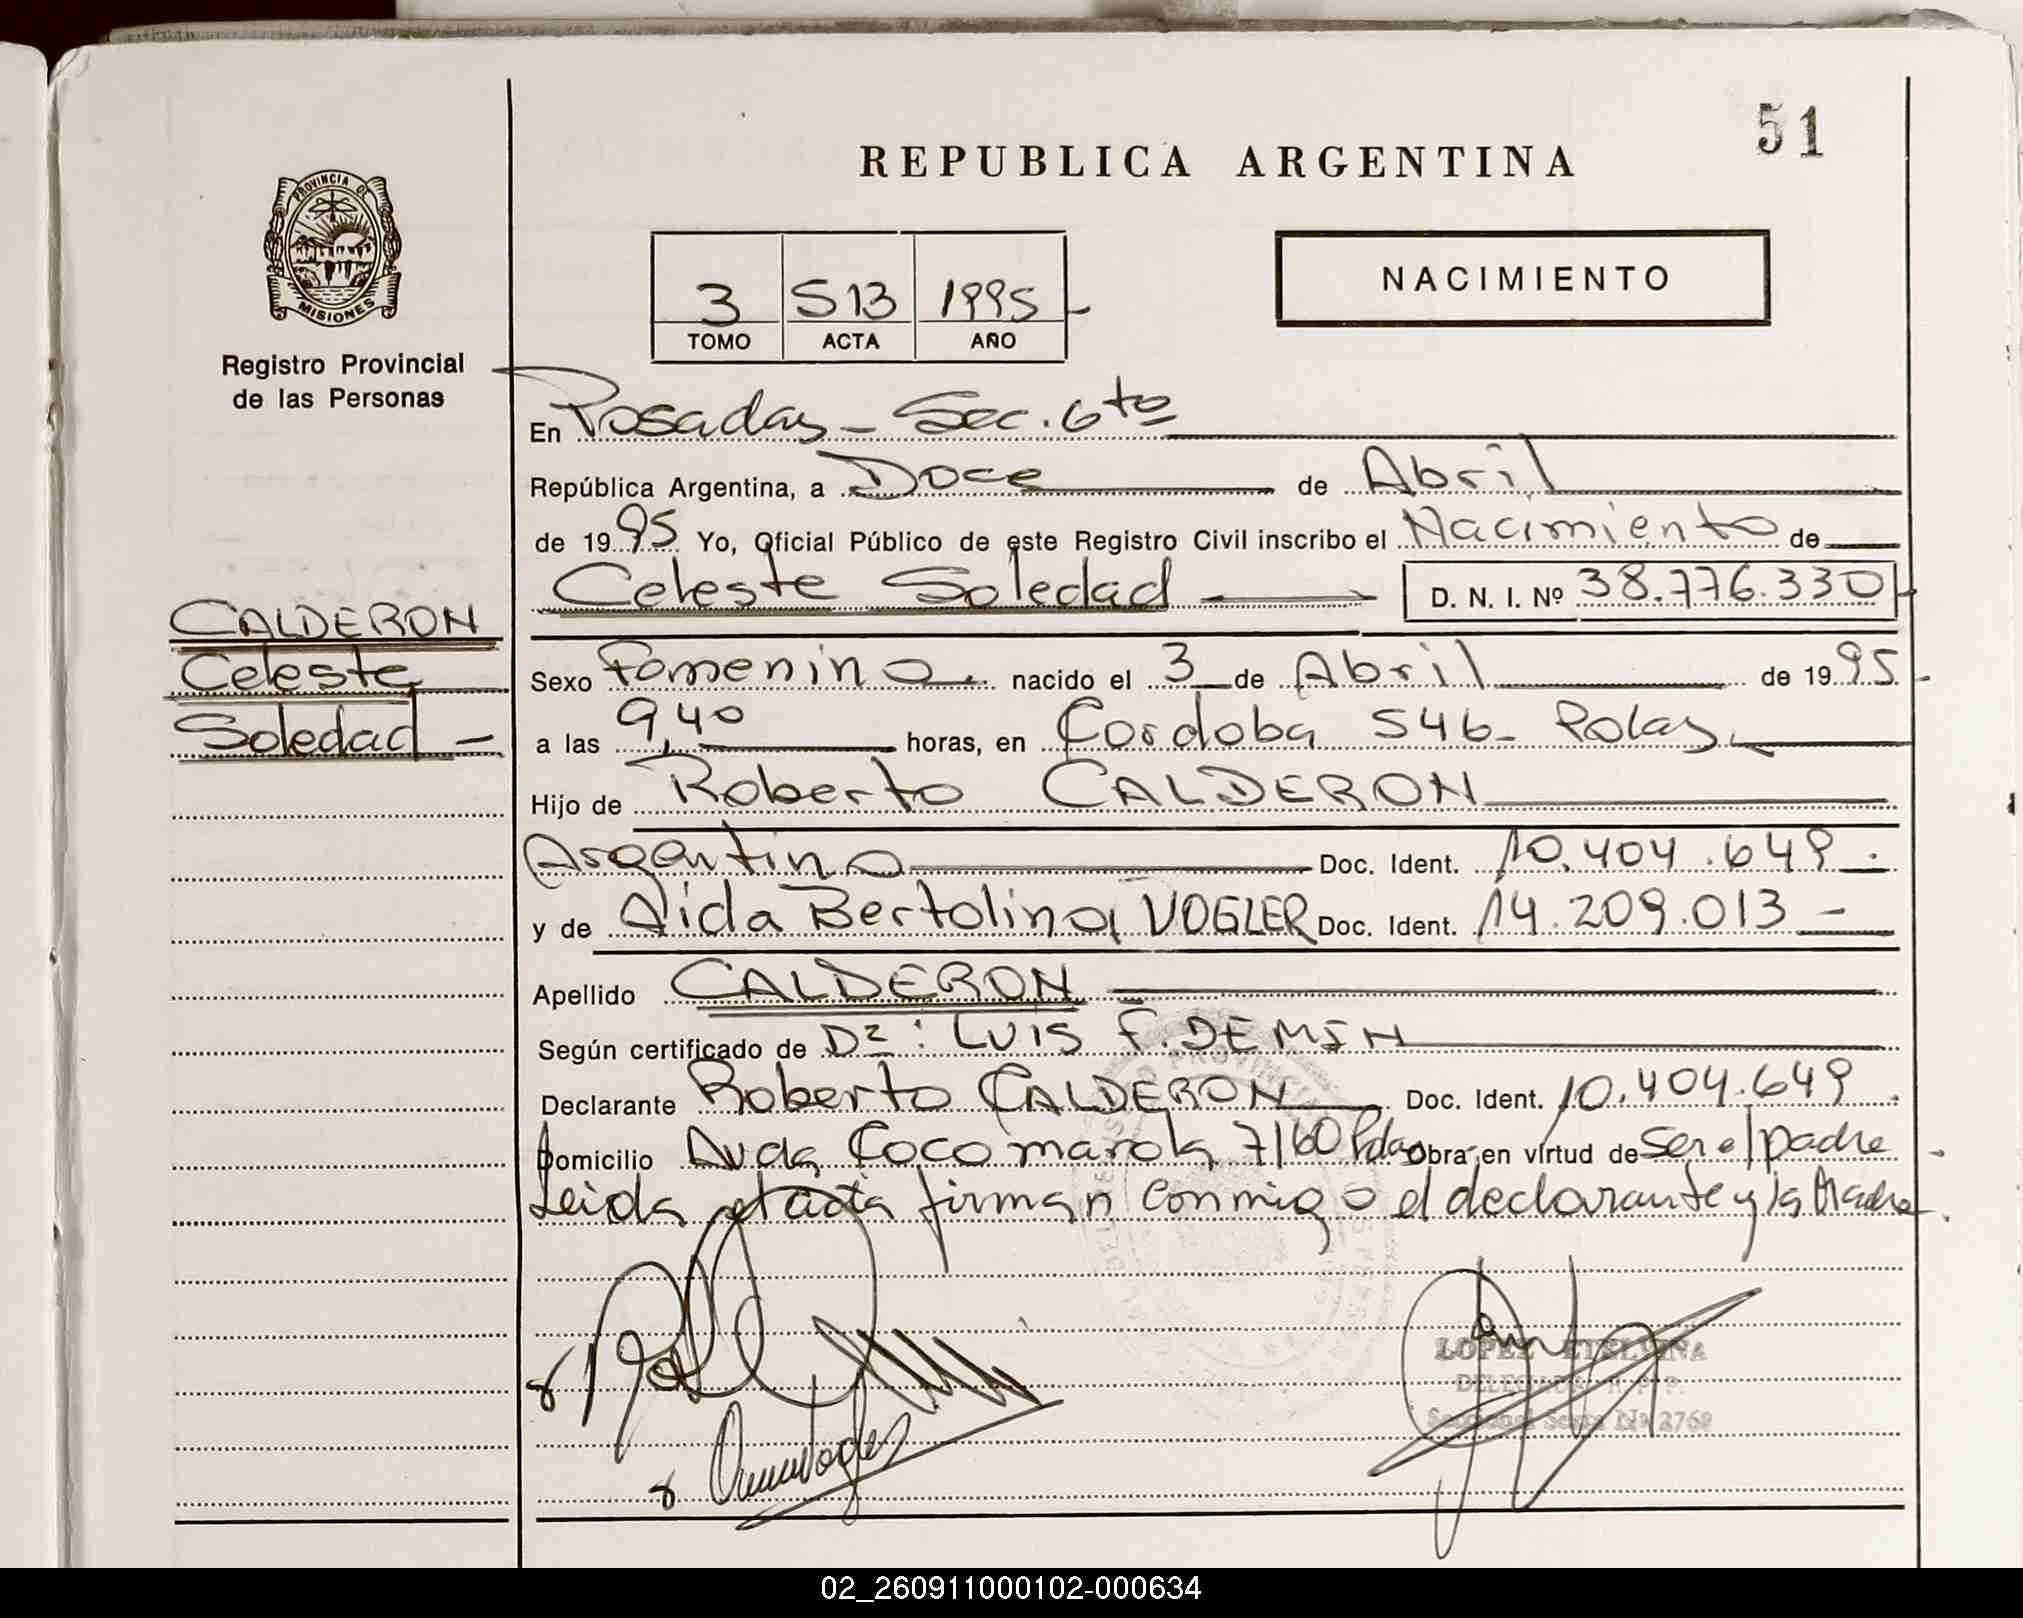 51
REPUBLICA ARGENTINA
PROVINCIA DE
MISIONES
Registro Provincial
de las Personas
3 513 1995
TOMO ACTA AÑO
NACIMIENTO
En Posadas - Sec. 6to
República Argentina, a Doce de Abril
de 1995 Yo, Oficial Público de este Registro Civil inscribo el Nacimiento de
Celeste Soledad D. N. I. Nº 38.776.330
CALDERON
Celeste
Soledad -
Sexo Femenino. nacido el 3 de Abril de 1995
a las 9,40 horas, en Cordoba 546 - Pdas,
Hijo de Roberto CALDERON
Argentino Doc. Ident. 10.404.649
y de Aida Bertolina VOGLER Doc. Ident. 14.209.013 -
Apellido CALDERON
Según certificado de Dr: LUIS F. DEMIN
Declarante Roberto CALDERON Doc. Ident. 10.404.649
Domicilio Avda Cocomarola 7160 Pdas Obra en virtud de ser el padre
Leida el acta firman conmigo el declarante y la Madre.
LOPEZ ETELVINA
DELEGADA R.P.P.
Seccional Sexta 2768
02_260911000102-000634